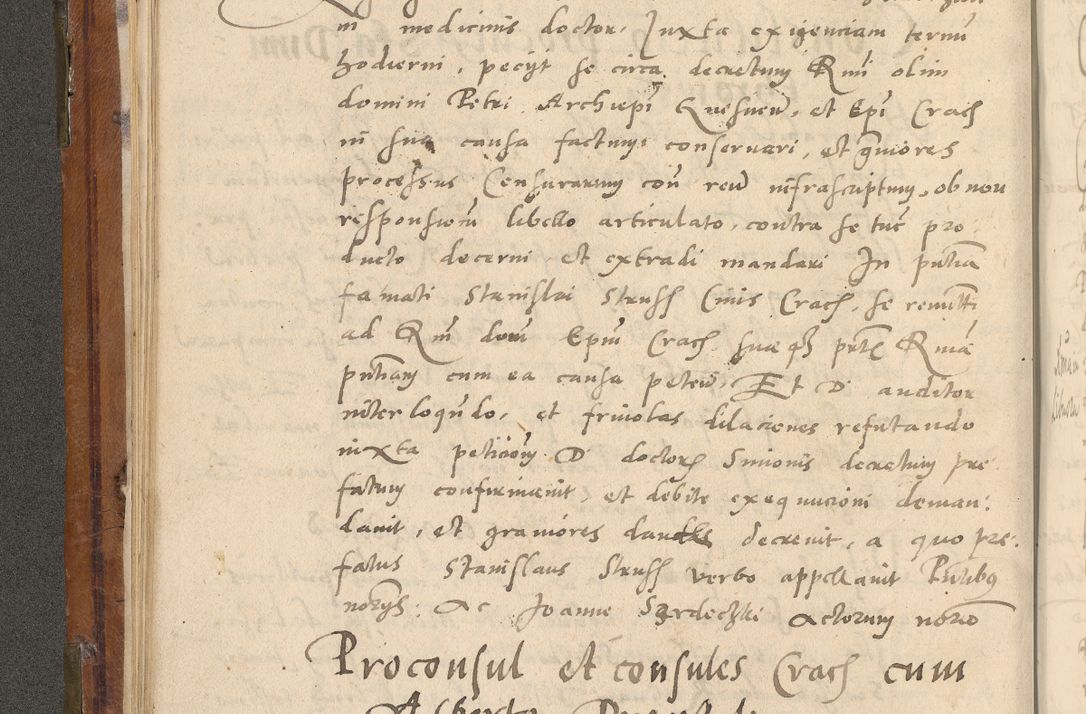 in medicinis doctor. Juxta exigenciam termi
hodierni, pecijt se circa decretum Rmi olim
domini Petri Archiepi Gneznen, et Epi Crac
in sua causa factum conservari, et graviores
processus Censurarum con reu infrascriptum, ob non
responsionem libello articulato, contra se tuc pro
ducto decerni, et extradi mandari In pntia
famati Stanislai Struss Civis Crac, se remitti
ad Rm dom Epm Crac suae qz pnte Rma
pntiam cum ea causa peten, Et D. auditor
interloqndo, et frivolas dilaciones refutando
iuxta peticiom D. doctoris Simonis decretum pre
fatum confirmavit, et debite exequucioni deman:
davit, et graviores dandas decrevit, a quo pre:
fatus Stanislaus Struss verbo appellavit Pntibus
norijs. Ac Joanne Szerdeczki Actorum norio
Proconsul et consules Crac cum